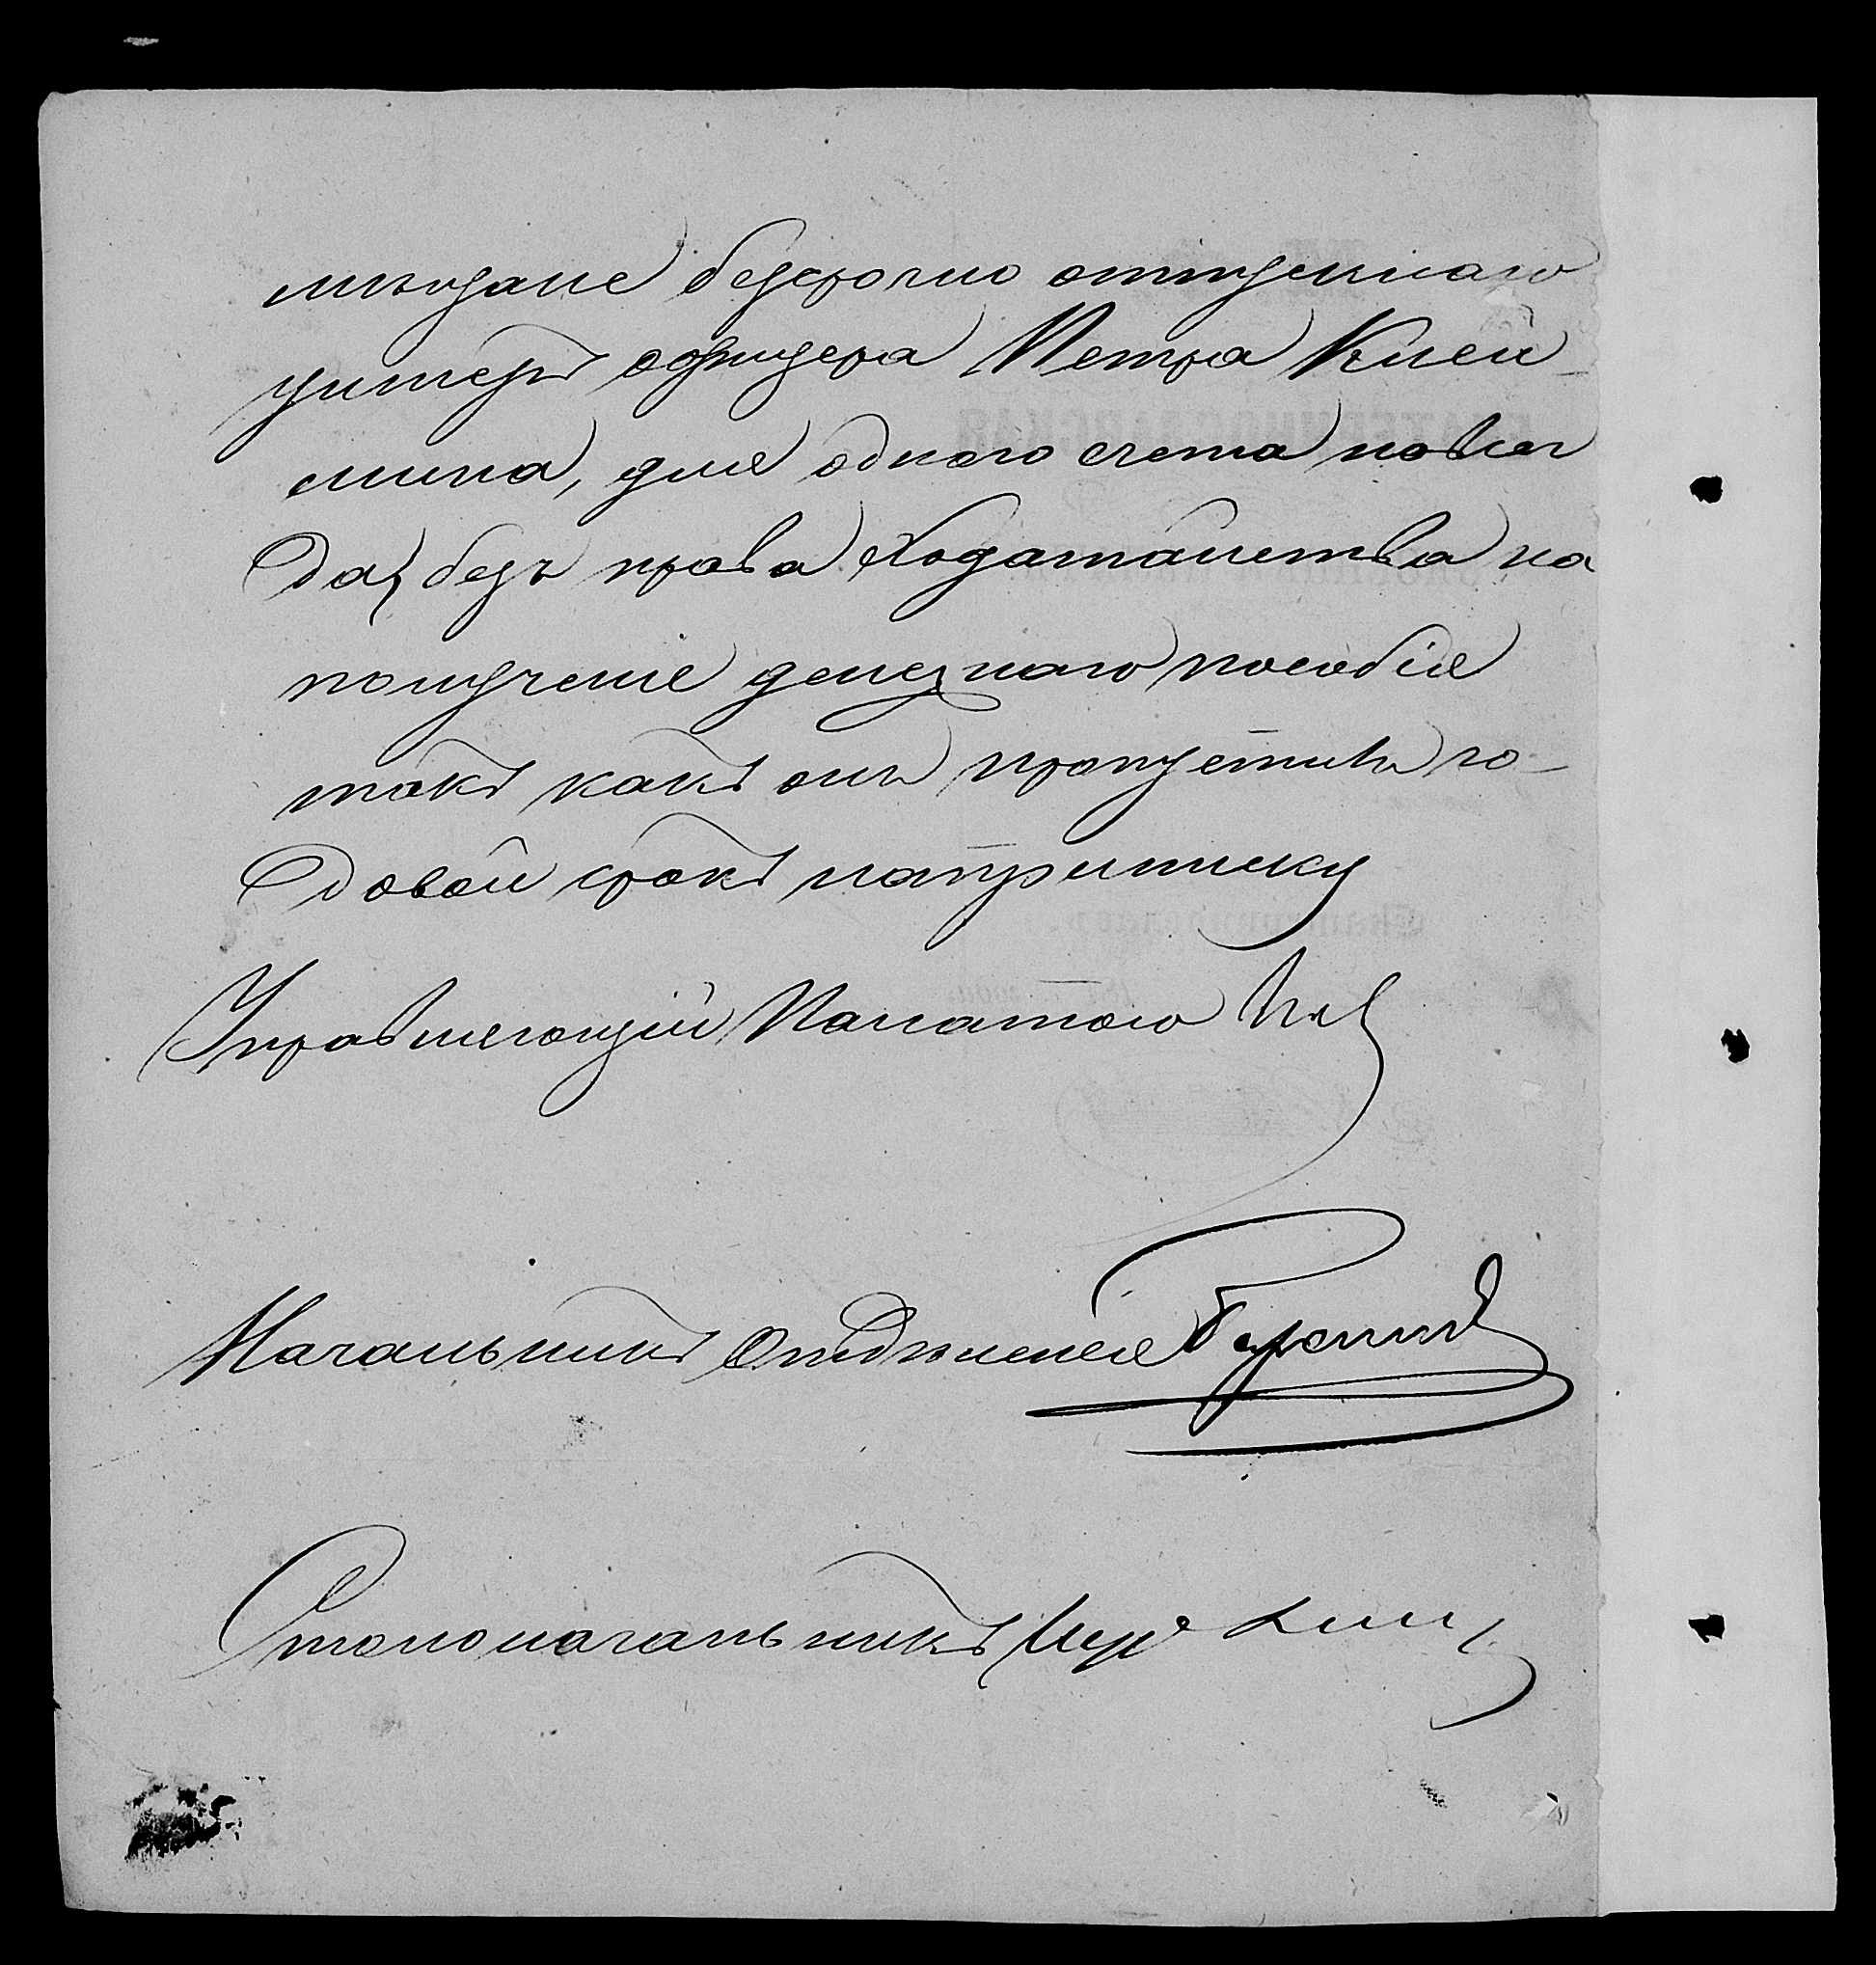 мѣщане безсрочно отпущеннаго
унтеръ офицера Петра Клей-
мина, для одного счета навсег
да, безъ права ходатайства на
полученіе денежнаго пособія
такъ какъ онъ пропустилъ го-
довой срокъ на приписку
Управляющій Палатою
Начальникъ Отдѣленія
Столоначальникъ